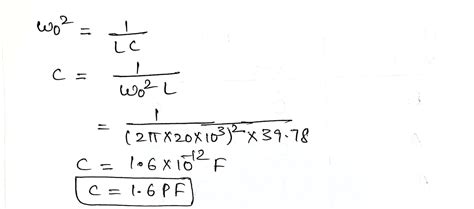 ω₀² = 1/LC
C = 1/ω₀² L
= 1/(2π×20×10³)²×39.78
C = 1.6×10⁻¹² F
C = 1.6 PF